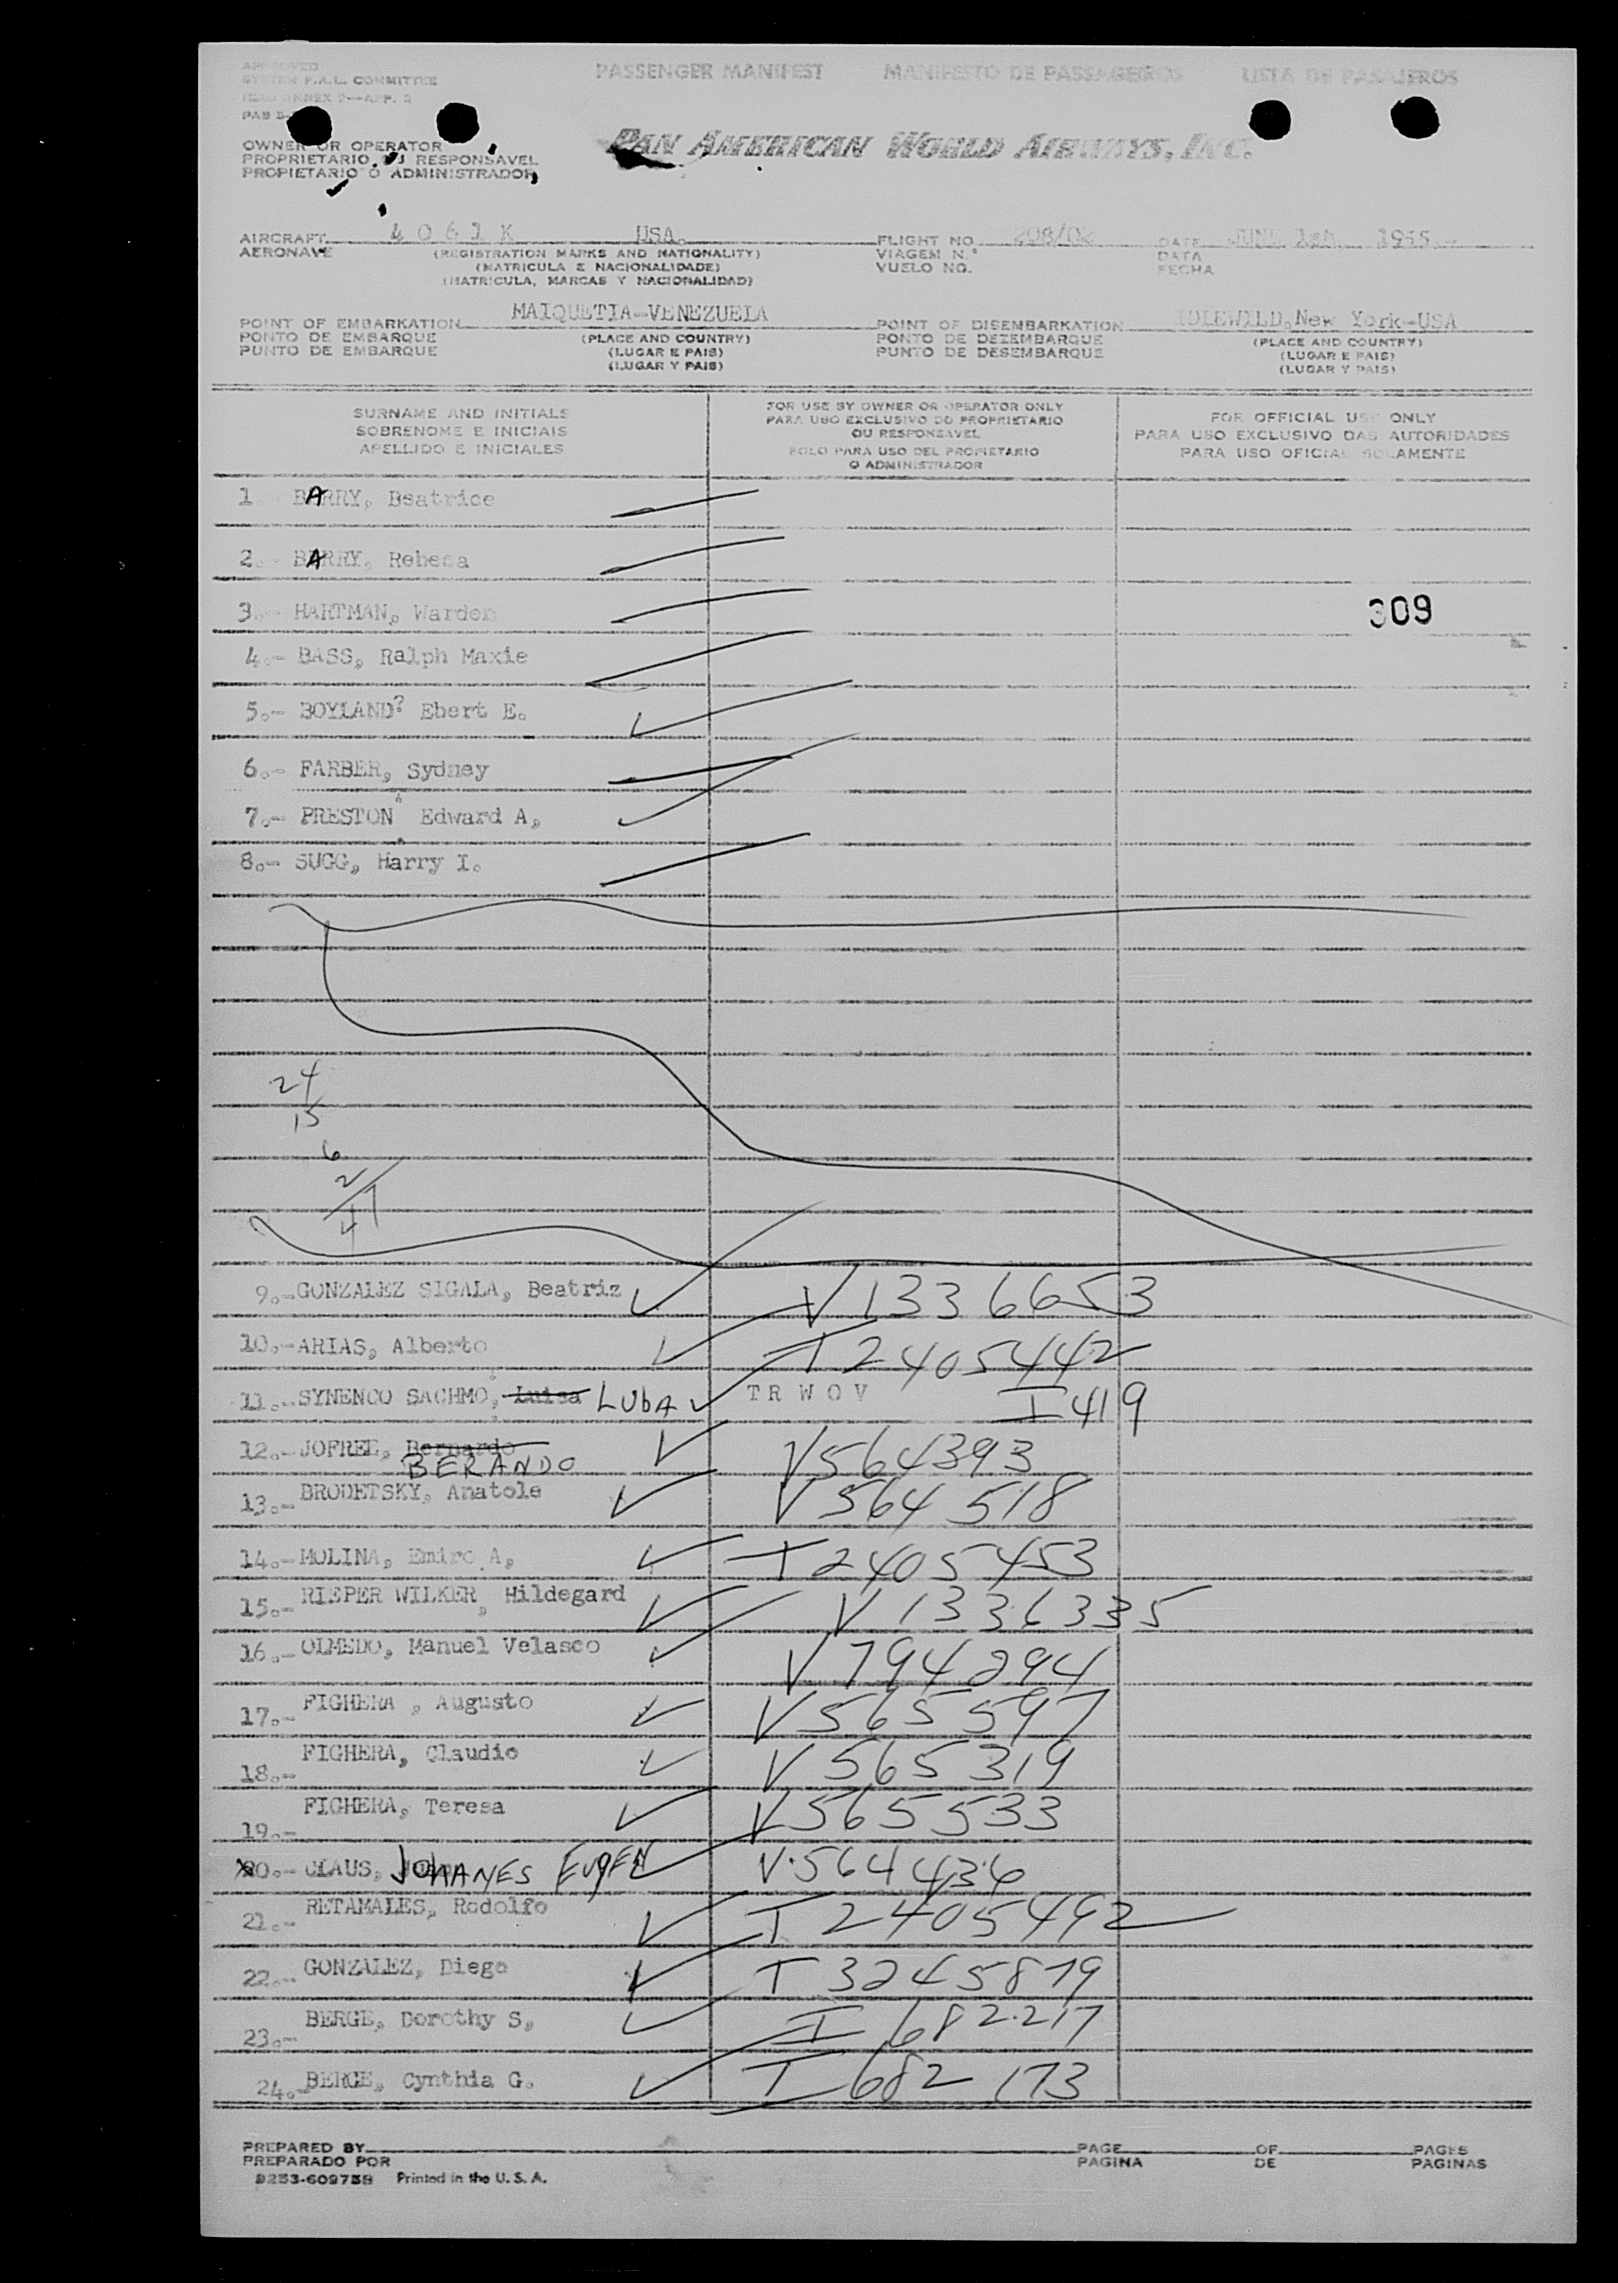 APPROVED
SYSTEM F.A.L. COMMITTEE
ICAO ANNEX 9—APP. 2
PASSENGER MANIFEST MANIFESTO DE PASSAGEIROS LISTA DE PASAJEROS
OWNER OR OPERATOR
PROPRIETARIO OU RESPONSAVEL
PROPIETARIO O ADMINISTRADOR
PAN AMERICAN WORLD AIRWAYS, INC.
AIRCRAFT 4061K USA.
AERONAVE
(REGISTRATION MARKS AND NATIONALITY)
(MATRICULA E NACIONALIDADE)
(MATRICULA, MARCAS Y NACIONALIDAD)
FLIGHT NO. 208/02
VIAGEM N.°
VUELO NO.
DATE JUNE 1st. 1955.
DATA
FECHA
POINT OF EMBARKATION MAIQUETIA-VENEZUELA
PONTO DE EMBARQUE
PUNTO DE EMBARQUE
(PLACE AND COUNTRY)
(LUGAR E PAIS)
(LUGAR Y PAIS)
POINT OF DISEMBARKATION IDLEWILD, New York-USA
PONTO DE DEZEMBARQUE
PUNTO DE DESEMBARQUE
(PLACE AND COUNTRY)
(LUGAR E PAIS)
(LUGAR Y PAIS)
SURNAME AND INITIALS
SOBRENOME E INICIAIS
APELLIDO E INICIALES
FOR USE BY OWNER OR OPERATOR ONLY
PARA USO EXCLUSIVO DO PROPRIETARIO
OU RESPONSAVEL
SOLO PARA USO DEL PROPIETARIO
O ADMINISTRADOR
FOR OFFICIAL USE ONLY
PARA USO EXCLUSIVO DAS AUTORIDADES
PARA USO OFICIAL SOLAMENTE
1 BARRY, Beatrice
2.- BARRY, Rebeca
3.- HARTMAN, Warden
309
4.- BASS, Ralph Maxie
5.- BOYLAND? Ebert E.
6.- FARBER, Sydney
7.- PRESTON Edward A,
8.- SUGG, Harry I.
24
15
6
2
47
9.- GONZALEZ SIGALA, Beatriz V 1336653
10.- ARIAS, Alberto T 2405442
11.- SYNENCO SACHMO, Luisa LUbA TRWOV I 419
12.- JOFREE, Bernardo V 564393
BERANDO
13.- BRODETSKY, Anatole V 564 518
14.- MOLINA, Emiro A, T 2405453
15.- RIEPER WILKER, Hildegard V 1336335
16.- OLMEDO, Manuel Velasco V 794294
17.- FIGHERA , Augusto V 565597
18.- FIGHERA, Claudio V 565319
19.- FIGHERA, Teresa V 565533
20.- CLAUS, JOHANES EUgEN V.564436
21.- RETAMALES, Rodolfo T 2405492
22.- GONZALEZ, Diego T 3245879
23.- BERGE, Dorothy S, I 682217
24.- BERGE, Cynthia G. I 682 173
PREPARED BY
PREPARADO POR
PAGE OF PAGES
PAGINA DE PAGINAS
9253-609758 Printed in the U. S. A.